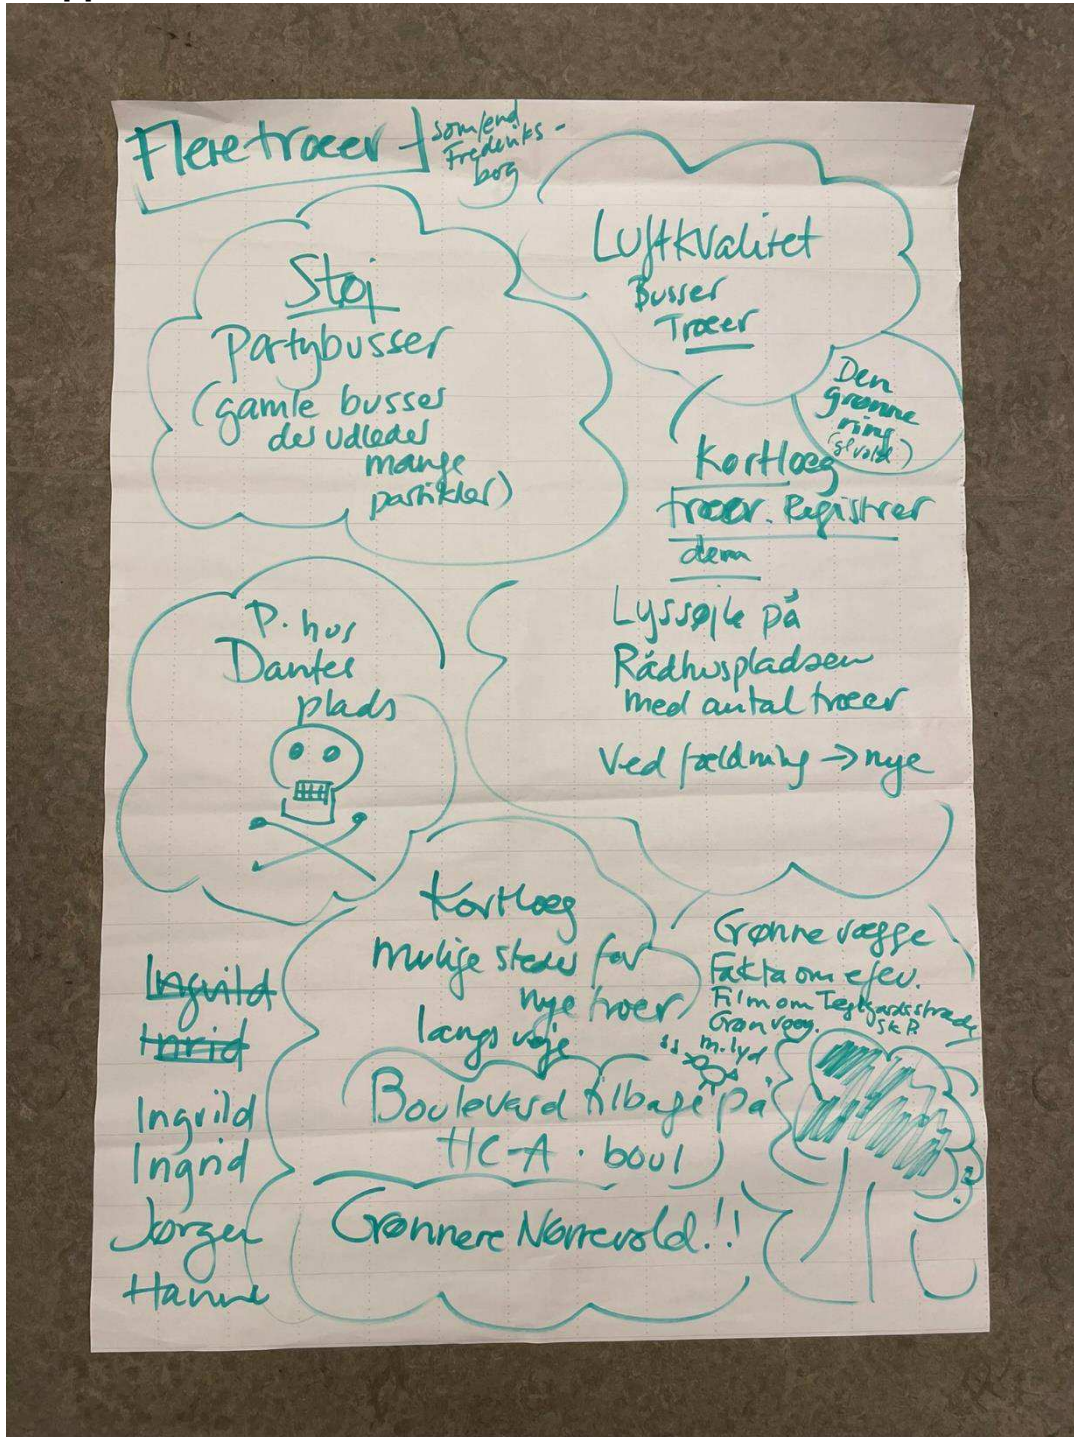 Flere træer
som/end
Frederiks-
borg
Støj
Partybusser
(gamle busser
der udleder
mange
partikler)
Luftkvalitet
Busser
Træer
Den
grønne
ring
Kortlæg
træer. Registrer
dem
Lyssøjle på
Rådhuspladsen
med antal træer
Ved fældning → nye
P. hus
Dantes
plads
Kortlæg
mulige steder for
nye træer
langs veje
Grønne vægge
Fakta om efeu.
Film om Teglgårdsstræde
Grøn væg.
m. lyd
Boulevard tilbage på
HC-A. boul
Grønnere Nørrevold!!
Ingvild
Ingrid
Ingvild
Ingrid
Jørgen
Hanne